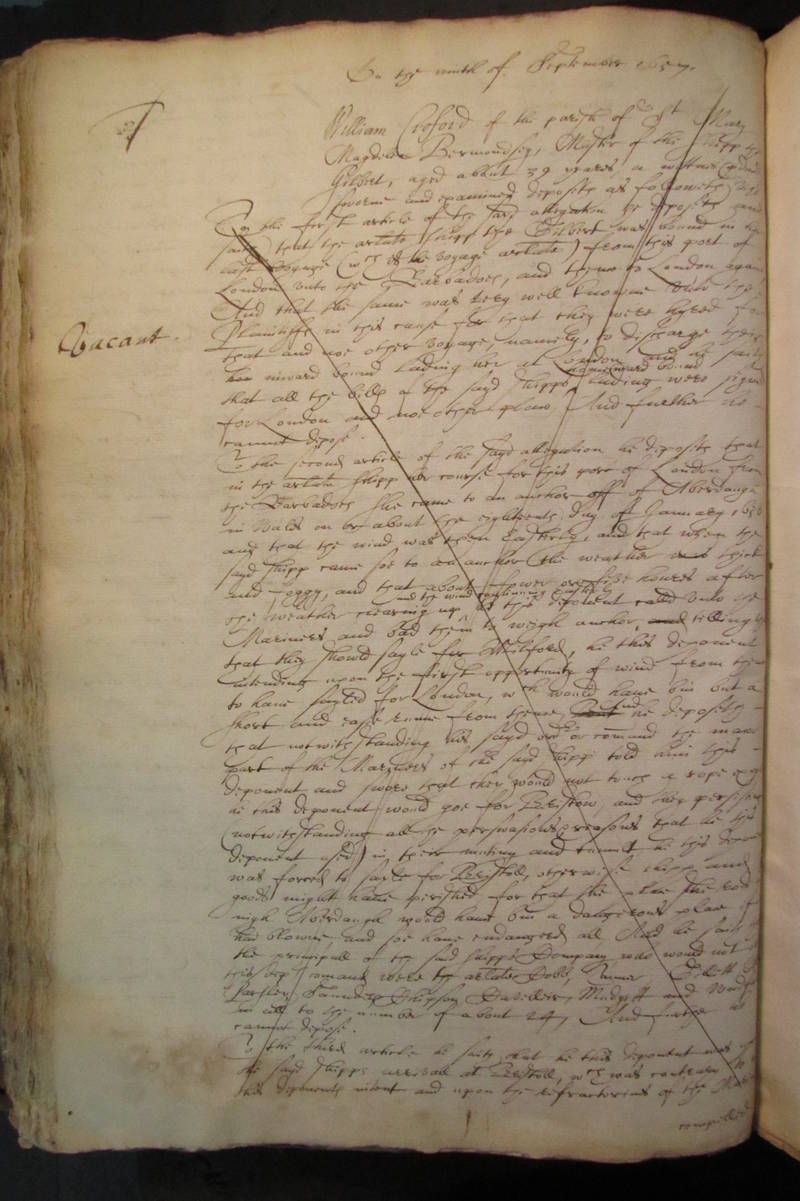 On the ninth of September 1657.
William Croford of the parish of St Mary
Magdalen Bermondsey, Master of the shipp the
Gilbert, aged about 39 yeares a wittnes
sworne and examined deposeth as followeth
To the first article of the sayd allegation he deposeth and
saith that the arlate shipp the Gilbert was bound in her
last voyage (wch is the voyage arlate) from this port of
London unto the Barbadoes, and thence to London againe
And that the same was very well knowne unto the
Plaintiffs in this cause for that they were hyred for
that and noe other voyage namely, to discharge their
inward bound lading her at London And he saith
homeward bound
that all the bills of the said shipps lading were signed
for London and noe other place, And further he
cannot depose.
Vacant.
To the second article of the sayd allegation he deposeth that
in the arlate shipp her course for this port of London from
the Barbadoes she came to an anchor off of Aberdaugh
in Wales on or about the eighteenth day of January 165
and that the wind was then Easterly, and that when the
sayd shipp came soe to an anchor the weather was thick
and foggy, and that about fower or five howres after
and the wind continuing Easterly
the weather clearing up this deponent unto the
Mariners and bad them to weigh anchor, and telling
that they should sayle for Milford, he this deponent
intending upon the first opportunity of wind from thence
to have sayled for London, wch would have bin but a
short and easie runne from thence And he deposeth
that notwithstanding his sayd order or comand the maior
part of the Mariners of the said shipp told him this
deponent and swore that they would not touch a rope except
he this deponent would goe for Bristow, and they persisting
(notwithstanding all the perswasions reasons that he this
deponent used) in their mutiny and tumult he this deponent
was forced to sayle for Bristoll, otherwise shipp and
goods might have perished for that the place
nigh Aberdaugh would have bin a dangerous place if
had blowne, and soe have endangered all, And he saith
the principall of the said shipps Company who would not
comand were the arlate Dobs,
Parsley, Saunders Simpson and
in all to the number of about 24, And further he
cannot depose.
To the third article he saith that he this deponent was
the sayd shipps arrivall at Bristoll, wch was contrary to
this deponents intent and upon the refractorines of the
compelled